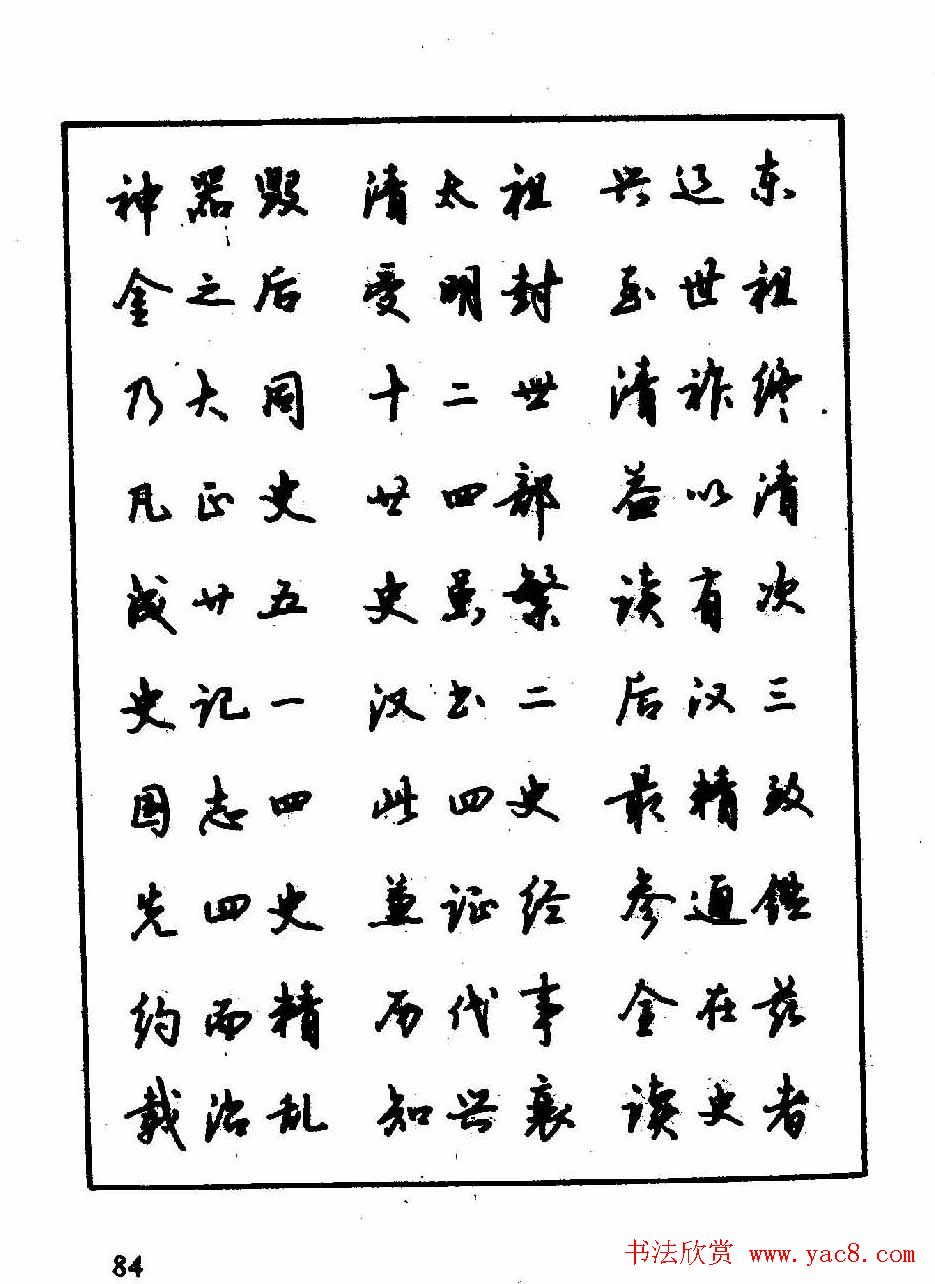 神器毁 清太祖 兴辽东
金之后 受明封 至世祖
乃大同 十二世 清祚终
凡正史 廿四部 益以清
成廿五 史虽繁 读有次
史记一 汉书二 后汉三
国志四 此四史 最精致
先四史 兼证经 参通鉴
约而精 历代事 全在兹
载治乱 知兴衰 读史者
84
书法欣赏 www.yac8.com